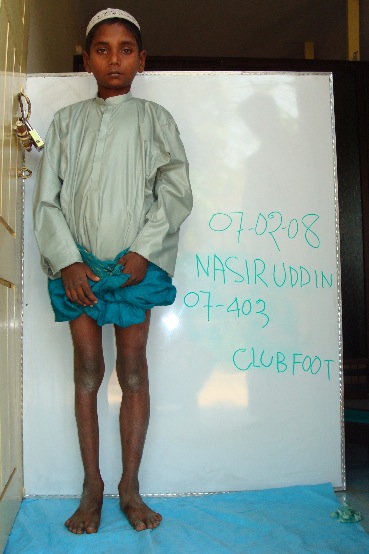 07-02-08
NASIRUDDIN
07-403
CLUBFOOT